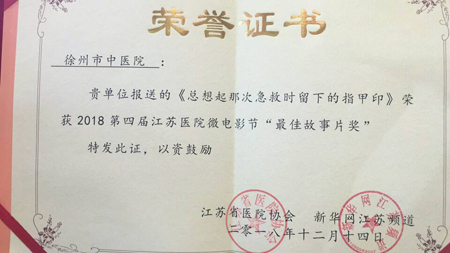 荣誉证书
徐州市中医院 ：
贵单位报送的《总想起那次急救时留下的指甲印》荣
获2018第四届江苏医院微电影节“最佳故事片奖”
特发此证，以资鼓励
江苏省医院协会 新华网江苏频道
二零一八年十二月十四日